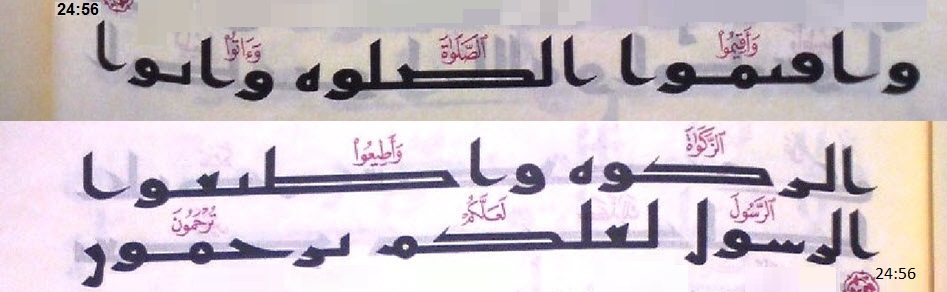 24:56
وَأَقِيمُوا۟ ٱلصَّلَوٰةَ وَءَاتُوا۟
واقيموا الصلوه واتوا
ٱلزَّكَوٰةَ وَأَطِيعُوا۟
الزكوه واطيعوا
ٱلرَّسُولَ لَعَلَّكُمْ تُرْحَمُونَ
الرسول لعلكم ترحمون
24:56